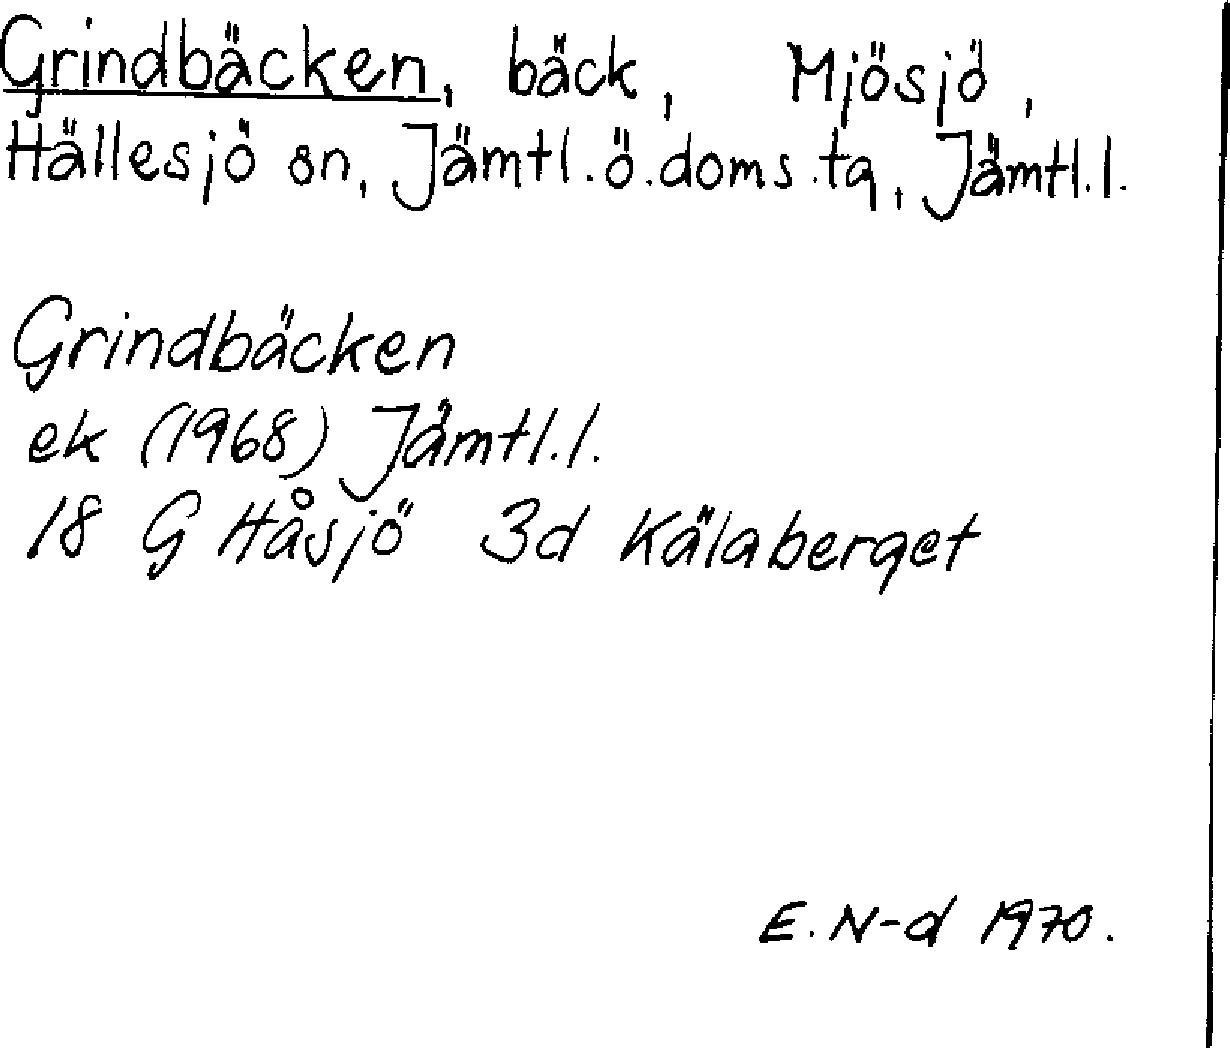 Grindbäcken, bäck, Mjösjö,
Hällesjö sn, Jämtl.ö.doms.tg, Jämtl.l.
Grindbäcken
ek (1968) Jämtl.l.
18 G Håsjö 3d Kälaberget
E. N-d 1970.